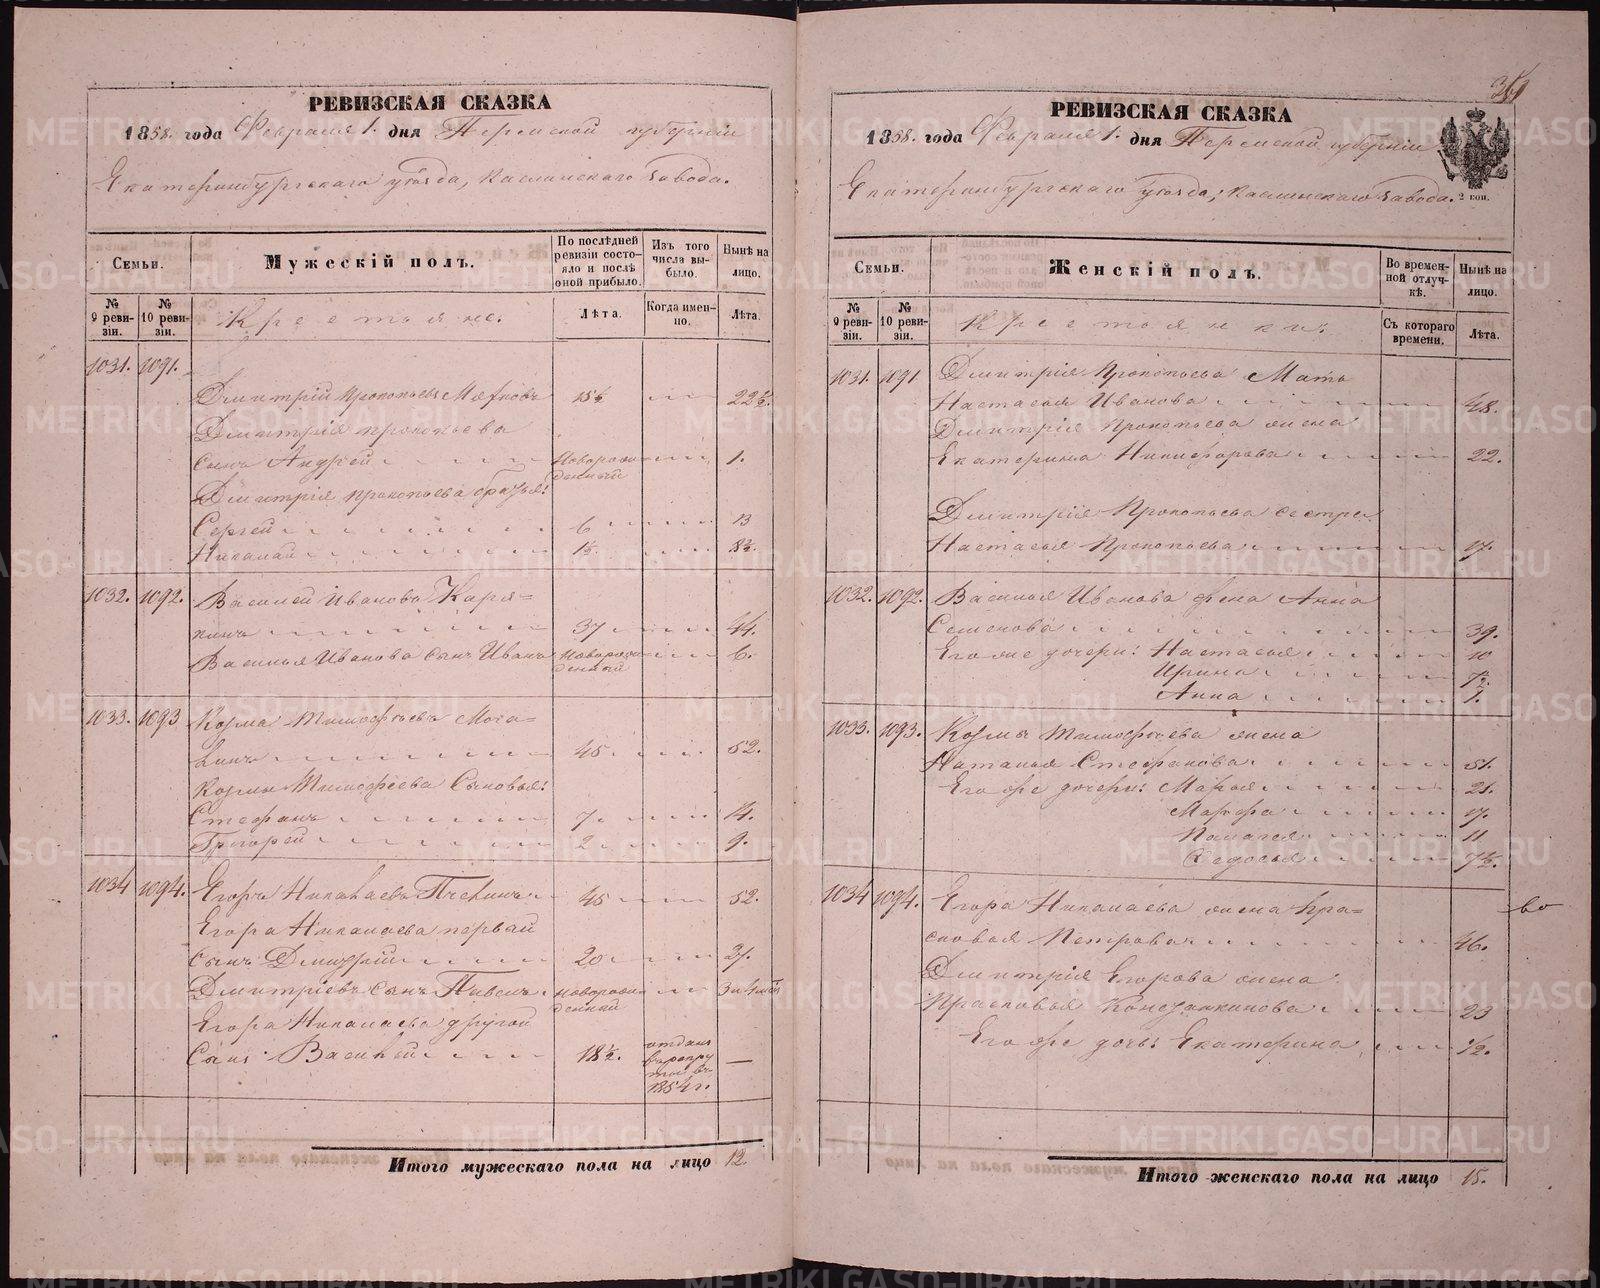 РЕВИЗСКАЯ СКАЗКА
1858. года Февраля 1. дня Пермской губерніи
Екатеринбургскаго уѣзда, Каслинскаго завода.
Семьи.
Мужескій полъ.
По послѣдней ревизіи состояло и послѣ оной прибыло.
Изъ того числа выбыло.
Нынѣ на лицо.
№ 9 ревизіи.
№ 10 ревизіи.
Крестьяне.
Лѣта.
Когда именно.
Лѣта.
1031. 1091.
Дмитрій Прокопьевъ 15½ 22½.
Дмитрія Прокопьева
сынъ Андрей новорожденный 1.
Дмитрія Прокопьева братья:
Сергей 6 13
Николай 1½. 8½.
1032. 1092. Василей Ивановъ Каря=
кинъ 37 44.
Василья Иванова сынъ Иванъ новорожденный 6.
1033. 1093 Козма Тимофѣевъ Моча=
линъ 45 52.
Козмы Тимофѣева Сыновья:
Стефанъ 7 14.
Григорей 2 9.
1034 1094. Егоръ Николаевъ Пчелинъ 45 52.
Егора Николаева первый
сынъ Дмитрій 20 27.
Дмитріевъ сынъ Павелъ новорожденный
Егора Николаева другой
Сынъ Василей 18½. отданъ в рекруты въ 1854 г. —
Итого мужескаго пола на лицо 12.
РЕВИЗСКАЯ СКАЗКА
1858. года Февраля 1. дня Пермской губерніи
Екатеринбургскаго уѣзда, Каслинскаго завода.
2 коп.
Семьи.
Женскій полъ.
Во временной отлучкѣ.
Нынѣ на лицо.
№ 9 ревизіи.
№ 10 ревизіи.
Крестьянки.
Съ котораго времени.
Лѣта.
1031. 1091 Дмитрія Прокопьева Мать
Настасья Иванова 48.
Дмитрія Прокопьева жена
Екатерина Никифорова 22.
Дмитрія Прокопьева сестра
Настасья Прокопьева 17.
1032. 1092. Василья Иванова жена Анна
Семенова 39.
Его же дочери: Настасья 10
Ирина 7½.
Анна 1.
1033. 1093. Козмы Тимофѣева жена
Наталья Стефанова 51.
Его же дочери: Марья 21.
Марфа 17.
Палагея 11
Федосья 7½.
1034 1094. Егора Николаева жена Пра=
сковья Петрова 46.
Дмитрія Егорова жена
Прасковья Константинова 23
Его же дочь: Екатерина ½.
Итого женскаго пола на лицо 15.
METRIKI.GASO-URAL.RU